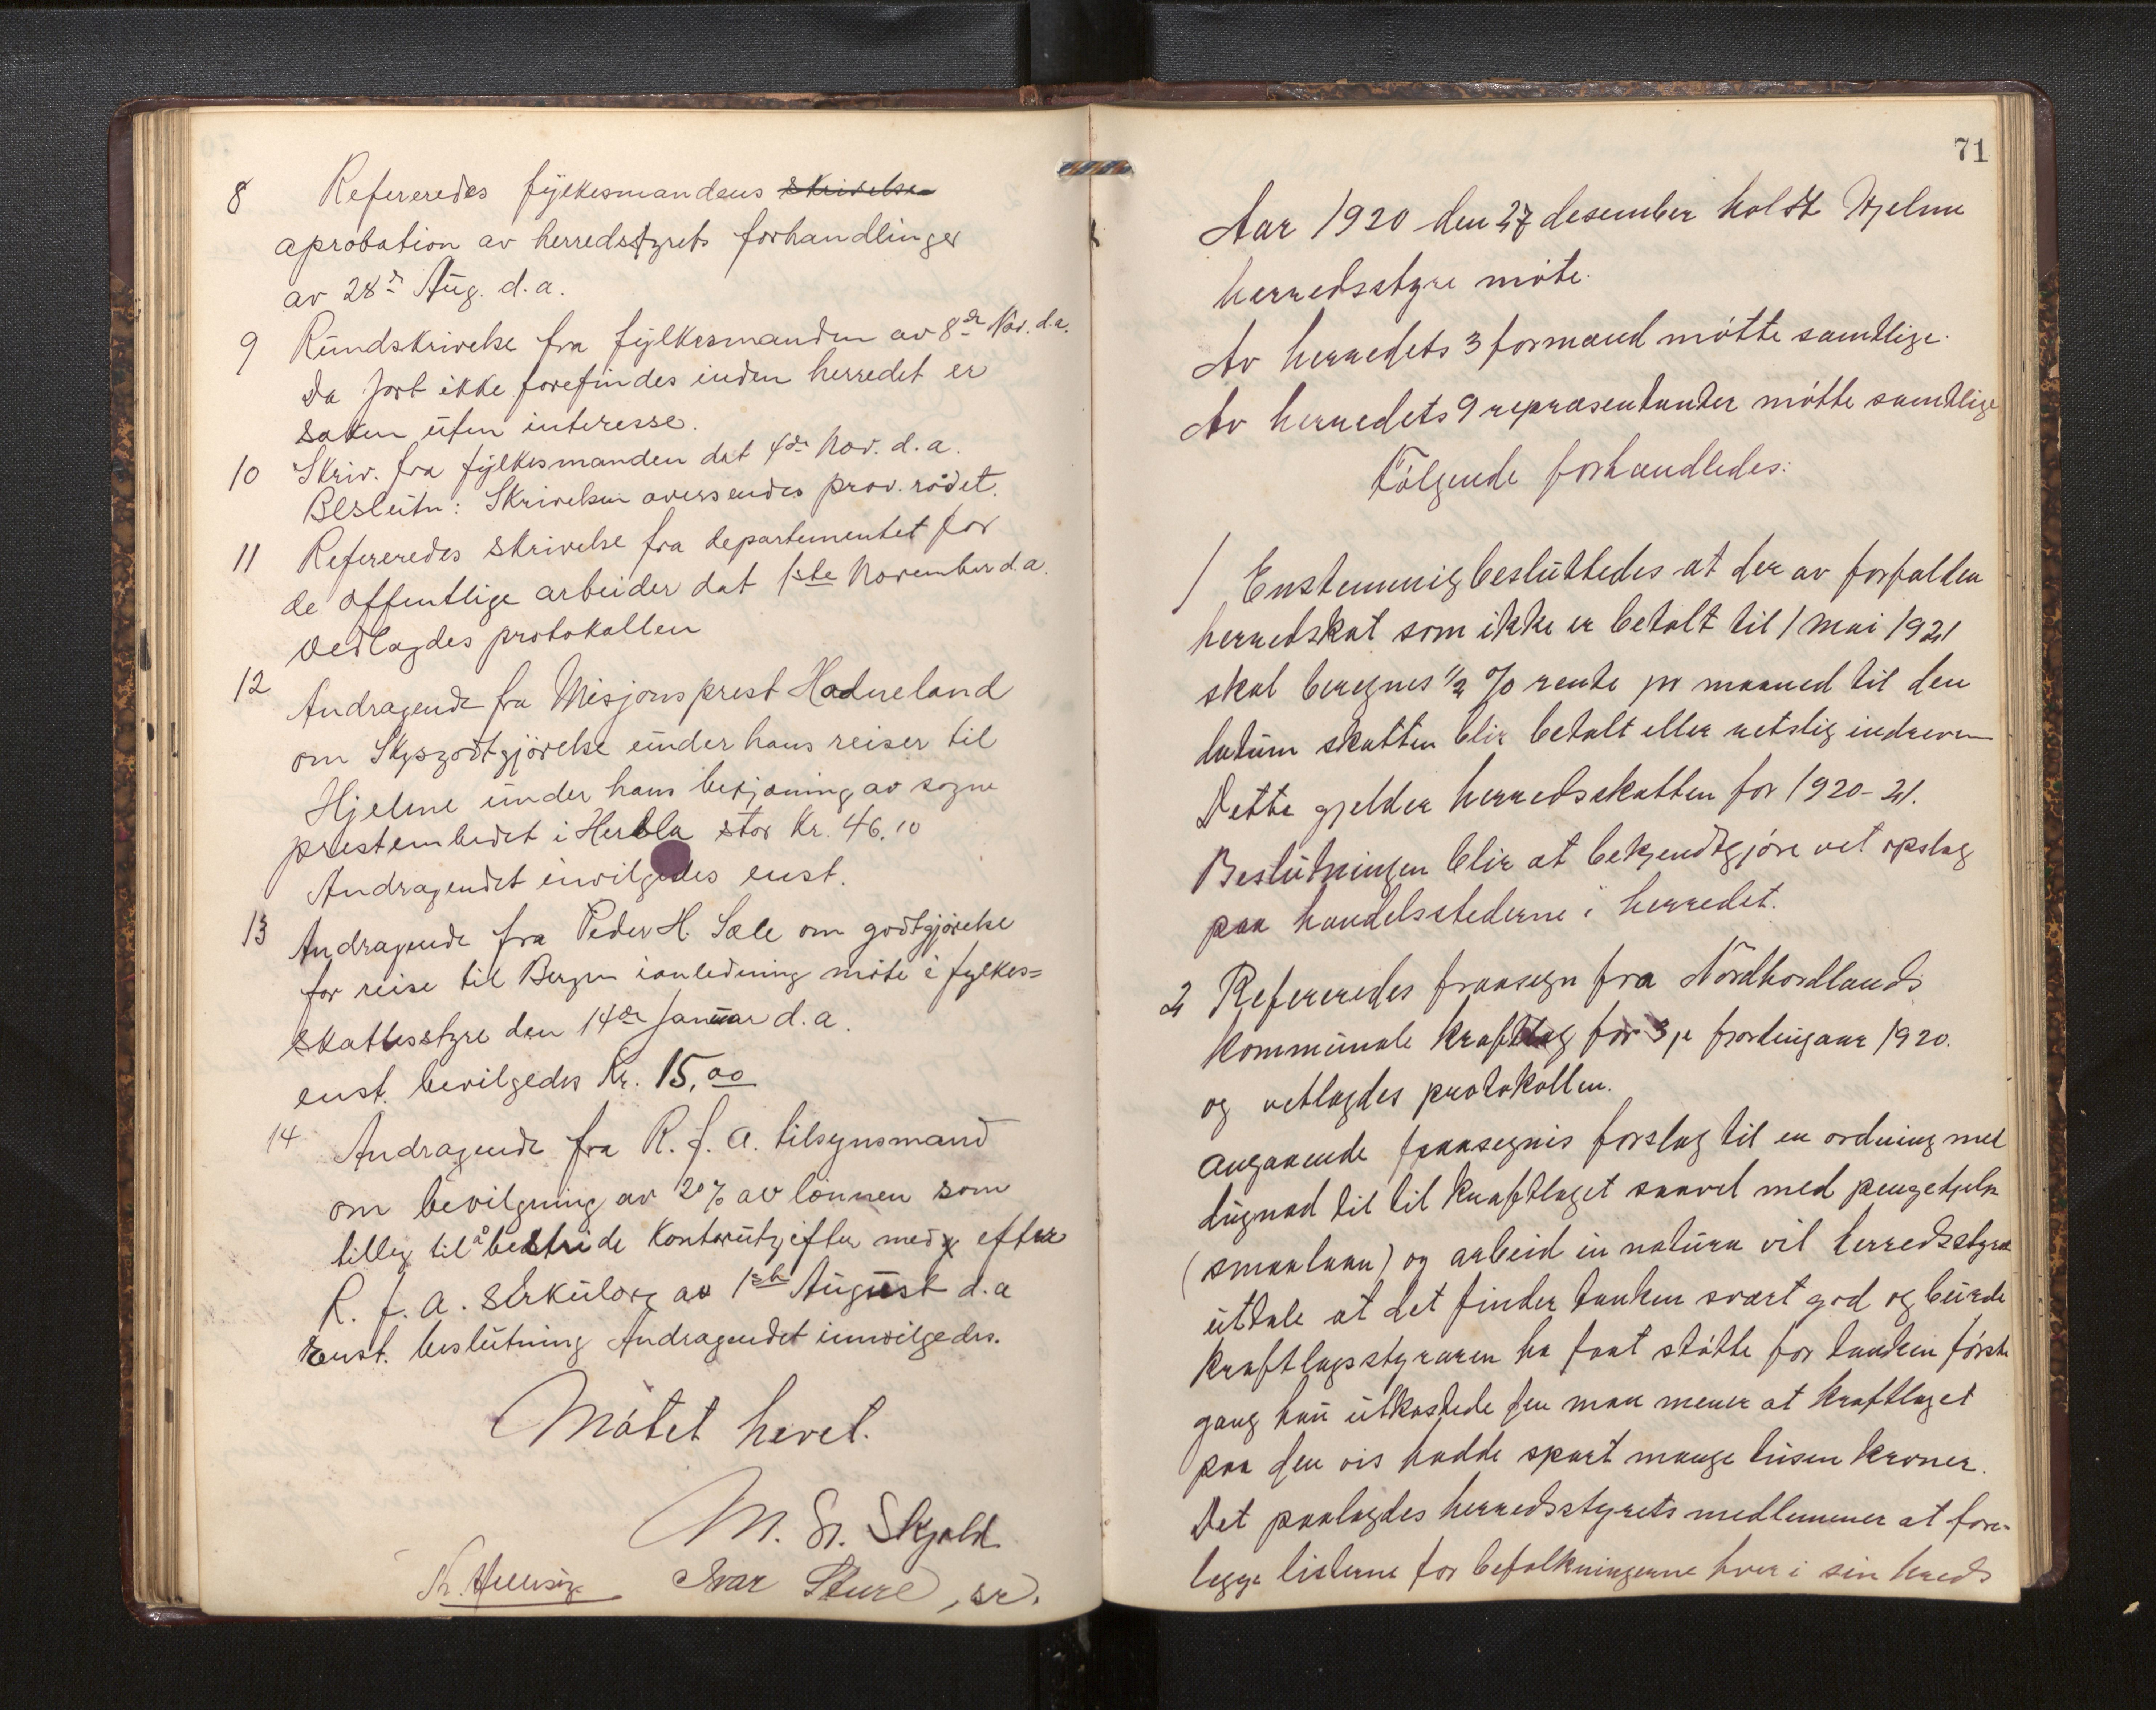 8 Refereredes fylkesmandens skrivelse
aprobation av herredsstyrets forhandlinger
av 28de Aug. d.a.
9 Rundskrivelse fra fylkesmanden av 8de Nov. d.a.
Da jort ikke forefindes inden herredet er
saken uten interesse.
10 Skriv. fra fylkesmanden dat 4de Nov. d.a.
Beslutn: Skrivelsen oversendes prov. rådet.
11 Refereredes skrivelse fra departementet for
de offentlige arbeider dat 1ste November d.a.
vedlagdes protokollen
12 Andragende fra Misjonsprest Hadneland
om Skyszgodtgjörelse under hans reiser til
Hjelme under hans betjæning av sogne
prestembedet i Herdla stor kr. 46.10
Andragendet invilgedes enst.
13 Andragende fra Peder H. Sæle om godtgjörelse
for reise til Bergen ianledning möte i fylkes=
skattesstyre den 14de Januar d.a.
enst. bevilgedes Kr. 15,00
14 Andragende fra R. f. a. tilsynsmand
om bevilgning av 20% av lönnen som
tilleg til å bestride Kontorutgifter med efter
R. f. a. serkulære av 1ste August d.a
Enst. beslutning Andragendet innvilgedes.
Mötet hevet.
M. Sr. Skjold
Ivar Sture, sr.
71
Aar 1920 den 27 desember holdt Hjelme
herredsstyre möte.
Av herredets 3 formænd mötte samtlige.
Av herredets 9 repræsentanter mötte samtlige
Fölgende forhandledes:
1 Enstemmig besluttedes at der av forfalden
herredskat som ikke er betalt til 1 mai 1921
skal beregnes 1/2 % rente pr maaned til den
datum skatten blir betalt eller retslig indreven
Dette gjelder herredsskatten for 1920-21.
Beslutningen blir at bekjendtgjöre vet opslag
paa handelsstederne i herredet.
2 Refereredes fraasegn fra Nordhordlands
kommunale kraftlag for 3je fjordingaar 1920.
og vetlagdes protokollen.
Angaaende fraasegnis forslag til en ordning med
dugnad til til kraftlaget saavel med pengehjelp
(smaalaan) og arbeid in natura vil herredsstyre
uttale at det finder tanken svært god og burde
kraftlagsstyraren ha faat stötte for tanken förste
gang han utkastede den man mener at kraftlaget
paa den vis hadde spart mange tusen kroner.
Det paalagdes herredsstyrets medlemmer at fore-
legge listerne for befolkningerne hver i sin kreds